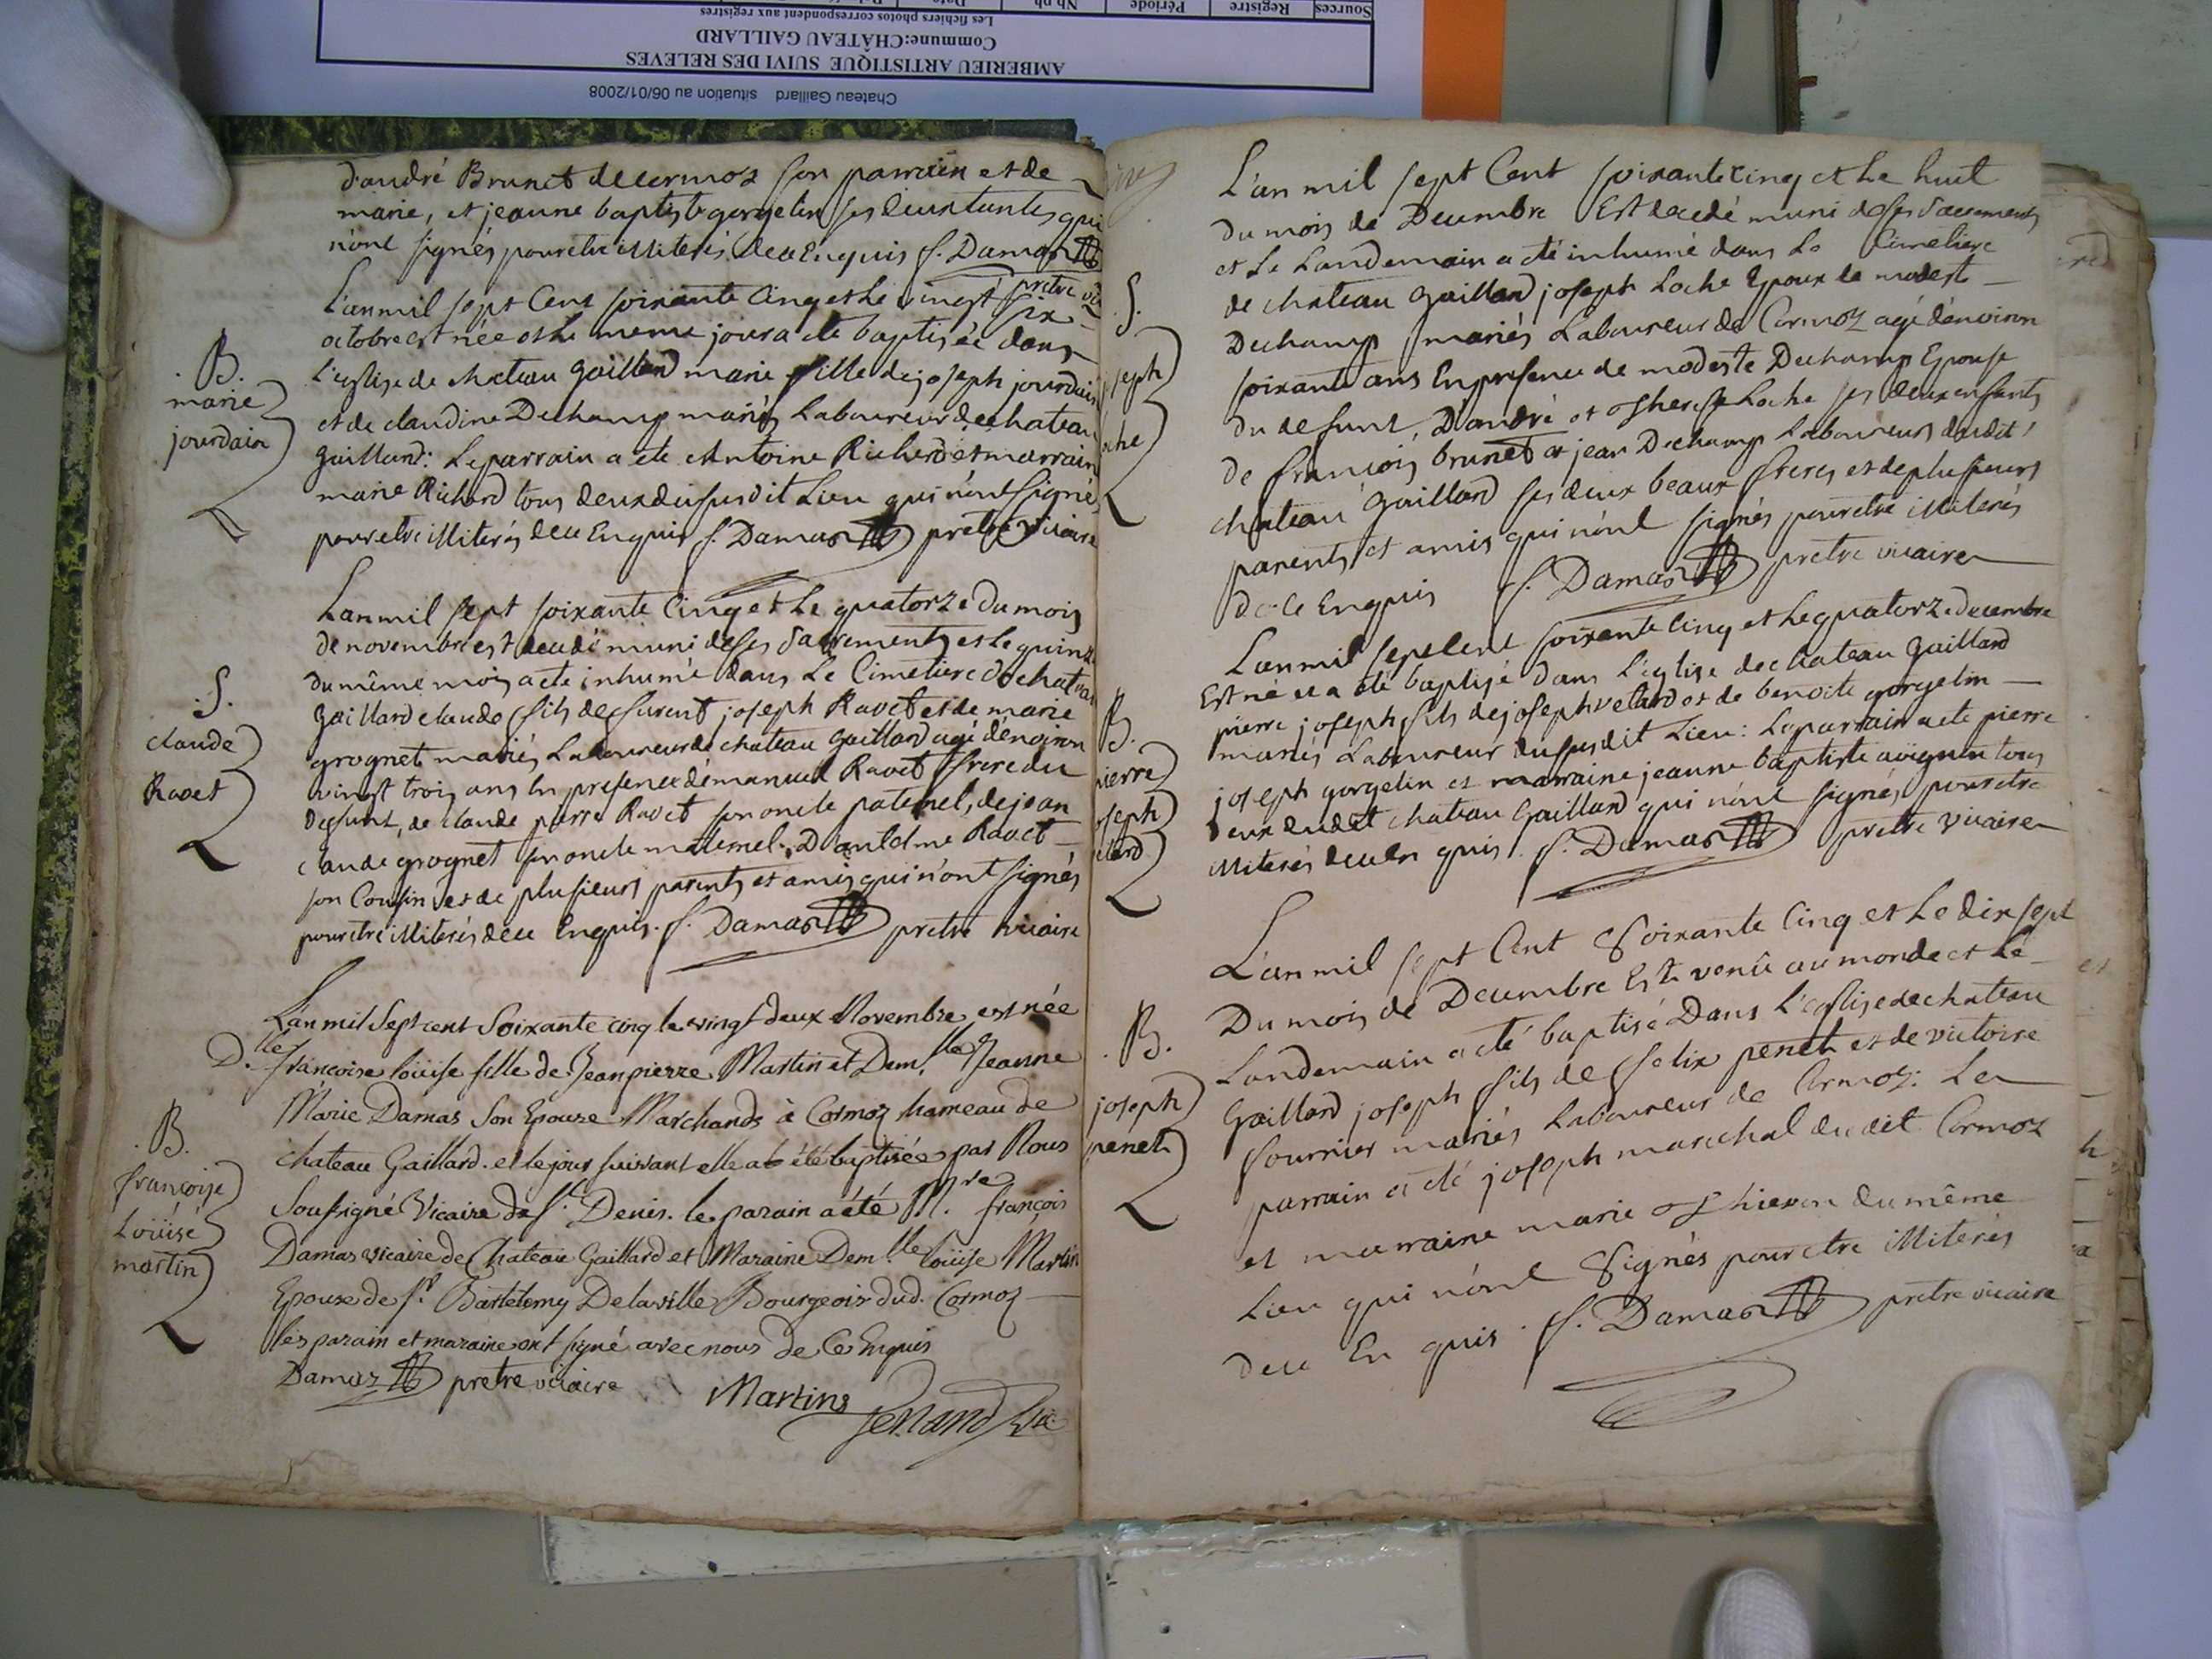 Chateau Gaillard situation au 06/01/2008
AMBERIEU ARTISTIQUE SUIVI DES RELEVES
Commune:CHÂTEAU GAILLARD
Les fichiers photos correspondent aux registres
Sources Registre Période Nb ph Date
d'andré Brunet de cormoz son parrain et de
marie, et jeanne baptiste gorgelin ses deux tantes qui
n'ont signés pour etre illiterés de ce Enquis f. Damas
prêtre vic
L'an mil sept Cent soixante Cinq et le vingt six
octobre est née et le meme jour a ete baptisée dans
L'eglise de chateau gaillard marie fille de joseph jourdain
et de claudine Dechamp mariés Laboureur de chateau
gaillard: Le parrain a ete Antoine Richerd et marraine
marie Richerd tous deux du susdit Lieu qui n'ont signé
pour etre illiterés de ce Enquis f. Damas prêtre vicaire
B.
marie
jourdain
L'an mil sept soixante Cinq et le quatorze du mois
de novembre est decedé muni de ses Sacrements et le quinze
du même mois a ete inhumé dans Le Cimetiere de chateau
gaillard claude fils de furent joseph Ravet et de marie
grognet mariés Laboureur de chateau gaillard agé d'énviron
vingt trois ans En presence d'émanuel Ravet frere du
defunt, de claude pierre Ravet son oncle paternel, de jean
claude grognet son oncle maternel. D'antelme Ravet
son Cousin et de plusieurs parents et amis qui n'ont signés
pour etre illiterés de ce Enquis. f. Damas pretre vicaire
S.
claude
Ravet
L'an mil Sept cent Soixante cinq le vingt deux Novembre est née
D.lle francoise loüise fille de Jean pierre Martin et Dem.lle Jeanne
Marie Damas Son Epouse Marchands à Cormoz hameau de
chateau Gaillard. et le jour suivant elle at été baptisée par Nous
Soussigné Vicaire de St. Denis. le parain a été M.re françois
Damas vicaire de Chateau Gaillard et Maraine Dem.lle loüise Martin
Epouse de Sr. Bartelemy Delaville Bourgeois dud. Cormoz
les parain et maraine ont signé avec nous de Ce Enquis
Damas pretre vicaire Martins
B.
françoise
Loüise
martin
L'an mil sept Cent soixante Cinq et Le huit
du mois de Decembre Est decedé muni de ses Sacrements
et Le Landemain a été inhumé dans Le Cimetiere
de chateau gaillard joseph Loche Epoux de modeste
Dechamp mariés Laboureur de Cormoz agé d'énviron
soixante ans En presence de modeste Dechamp Epouse
du defunt, D'andré et therese Loche ses deux enfants
de francois brunet et jean Dechamp Laboureurs dudit
chateau gaillard ses deux beaux freres et de plusieurs
parents et amis qui n'ont signés pour etre illiterés
de ce Enquis f. Damas pretre vicaire
S.
joseph
oche
L'an mil sept Cent soixante Cinq et Le quatorze decembre
Est né et a été baptisé dans L'eglise de chateau gaillard
pierre joseph fils de joseph velard et de benoite gorgelin
mariés Laboureur du susdit Lieu: Le parrain a ete pierre
joseph gorgelin et marraine jeanne baptiste tous
deux dudit chateau gaillard qui n'ont signés pour etre
illiterés de ce En quis. f. Damas pretre vicaire
B.
pierre
joseph
elard
L'an mil sept Cent Soixante Cinq et Le dix sept
Du mois de Decembre Est venû au monde et Le
Landemain a été baptisé Dans L'eglise de chateau
gaillard joseph fils de felix penet et de victoire
fournier mariés Laboureur de Cormoz: Le
parrain a été joseph marechal du dit Cormoz
et marraine marie du même
Lieu qui n'ont Signés pour etre illiterés
de ce En quis. f. Damas pretre vicaire
B.
joseph
penet